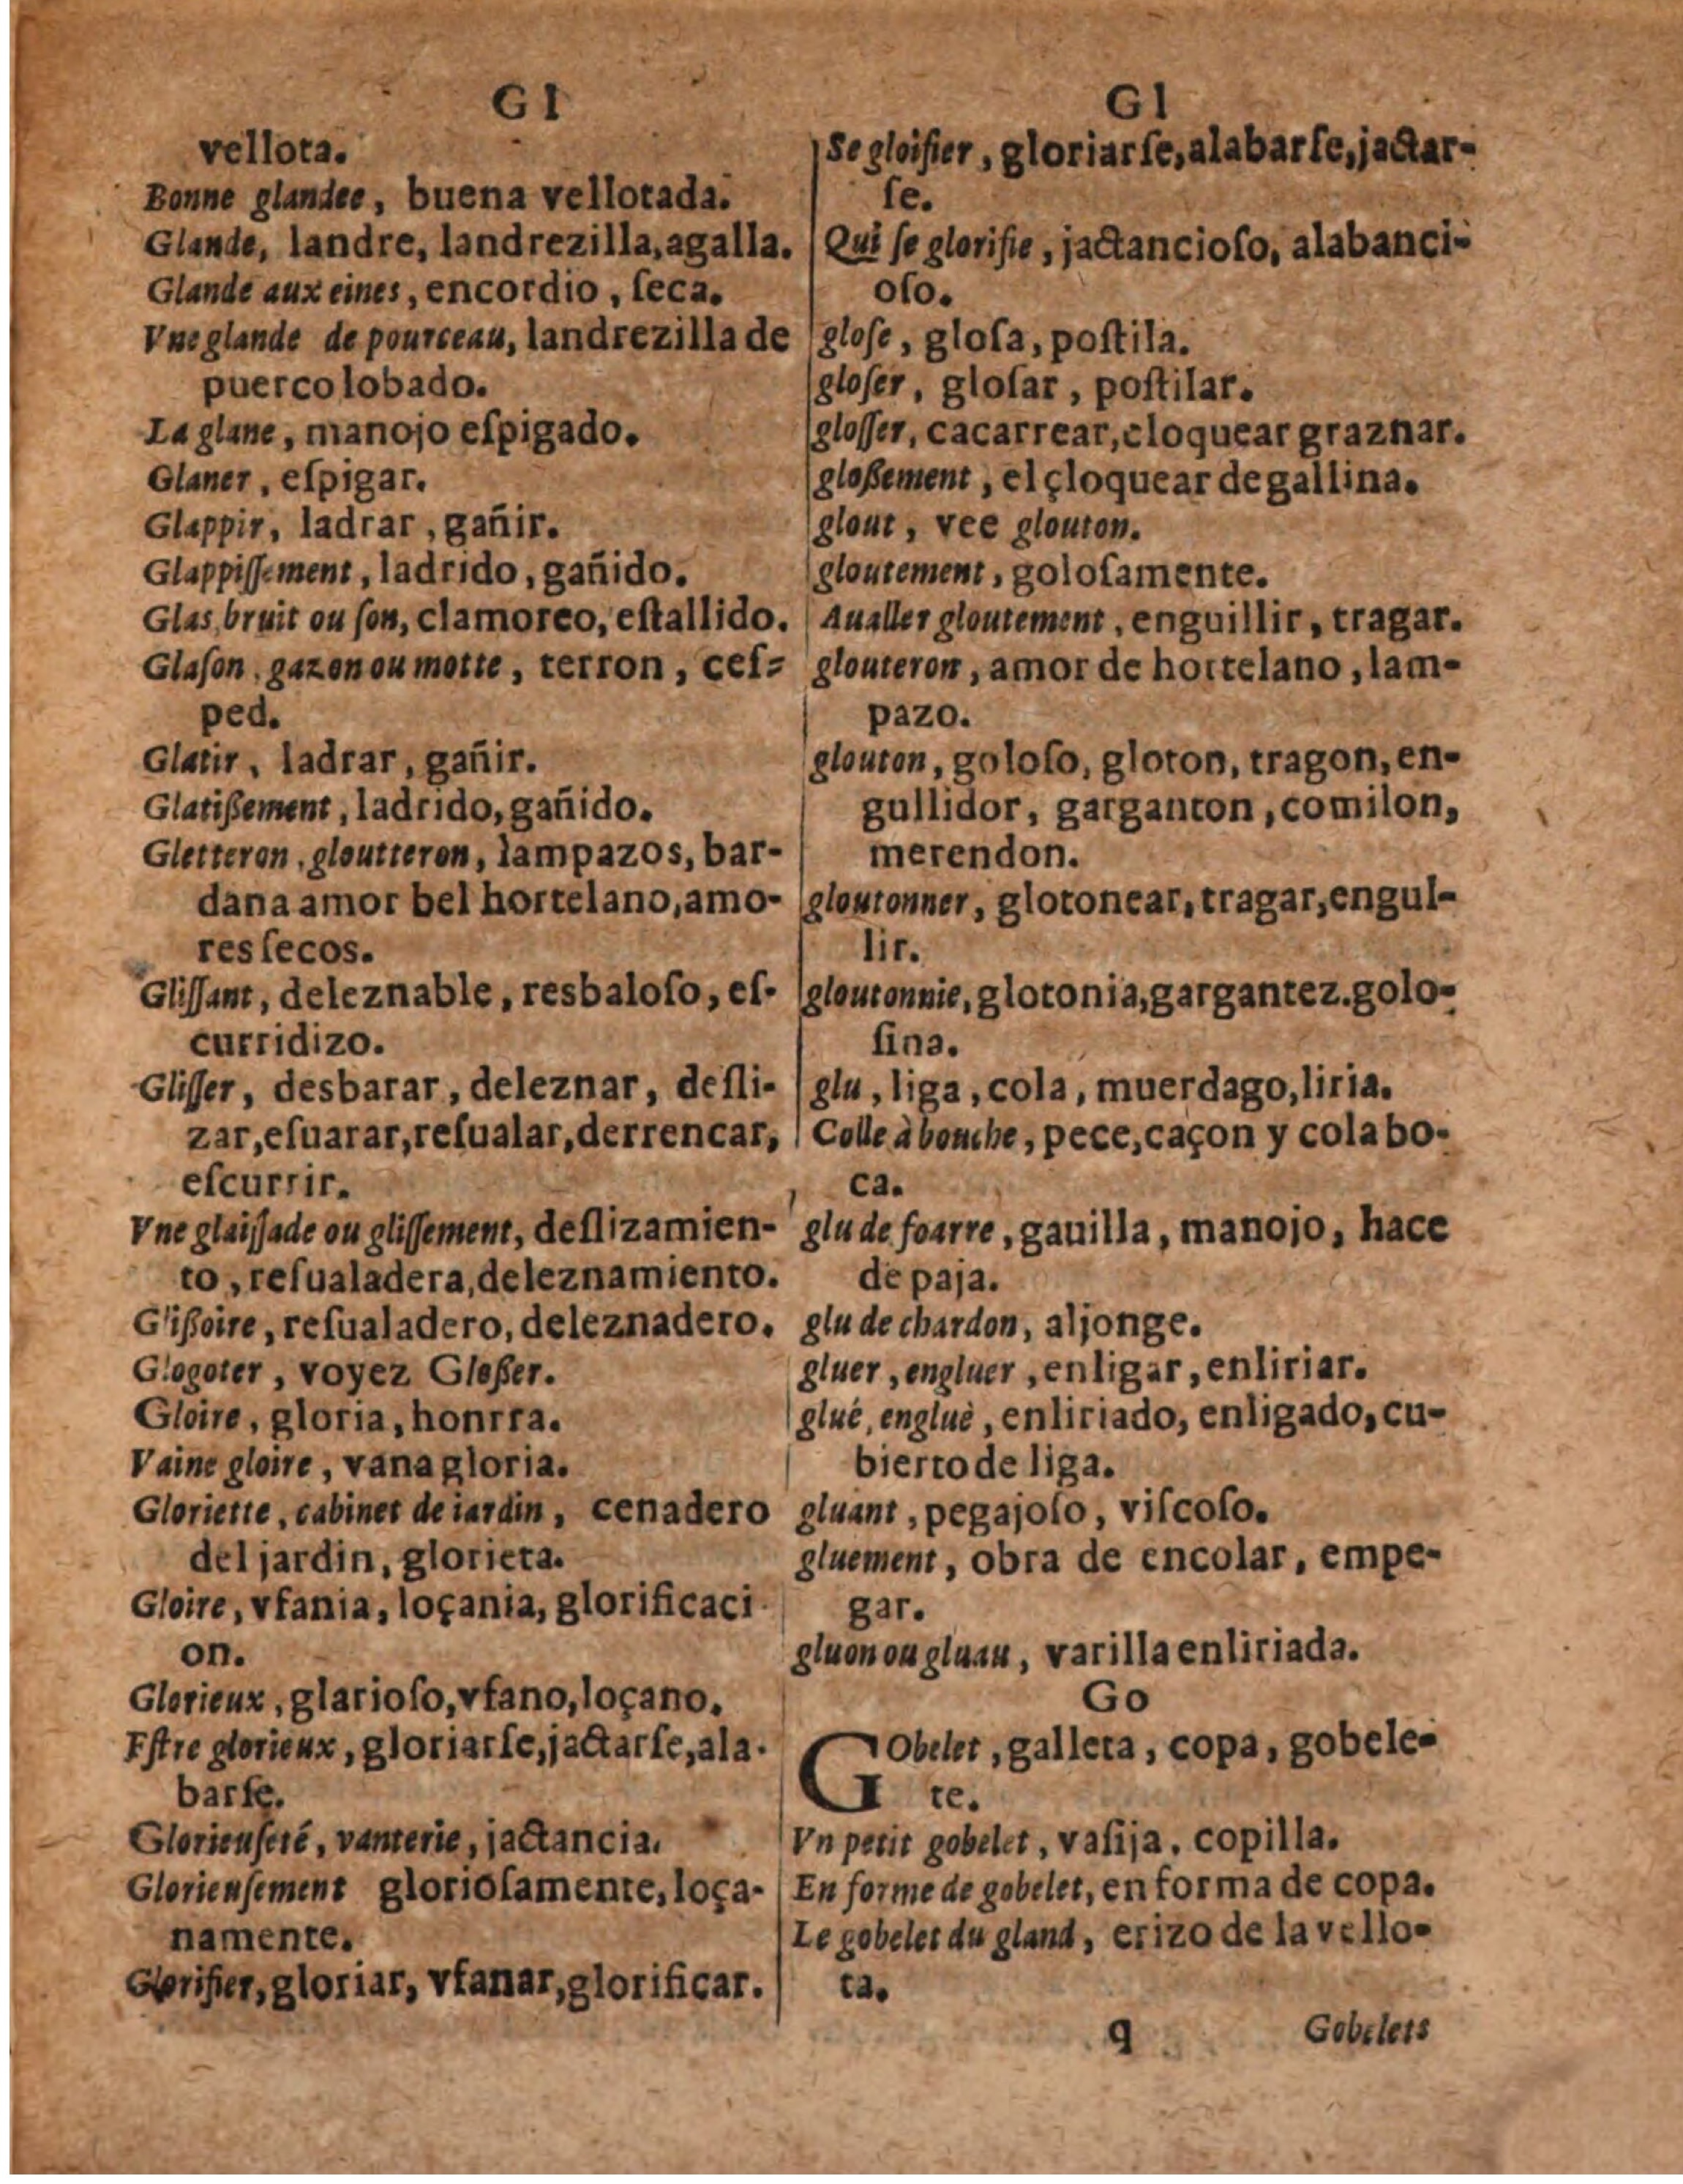 G I
vellota.
Bonne glandee, buena vellotada.
Glande, landre, landrezilla, agalla.
Glande aux eines, encordio, ſeca.
Vne glande de pourceau, landrezilla de
puerco lobado.
La glane, manojo eſpigado.
Glaner, eſpigar.
Glappir, ladrar, gañir.
Glappiſſement, ladrido, gañido.
Glas, bruit ou ſon, clamoreo, eſtallido.
Glaſon, gazon ou motte, terron, ceſ-
ped.
Glatir, ladrar, gañir.
Glatißement, ladrido, gañido.
Gletteron, gloutteron, lampazos, bar-
dana amor bel hortelano, amo-
res ſecos.
Gliſſant, deleznable, resbaloſo, eſ-
curridizo.
Gliſſer, desbarar, deleznar, deſli-
zar, eſuarar, reſualar, derrencar,
eſcurrir.
Vne glaiſſade ou gliſſement, deſlizamien-
to, reſualadera, deleznamiento.
Glißoire, reſualadero, deleznadero.
Glogoter, voyez Gloßer.
Gloire, gloria, honrra.
Vaine gloire, vana gloria.
Gloriette, cabinet de iardin, cenadero
del jardin, glorieta.
Gloire, vfania, loçania, glorificaci-
on.
Glorieux, glarioſo, vfano, loçano.
Eſtre glorieux, gloriarſe, jactarſe, ala-
barſe.
Glorieuſeté, vanterie, jactancia.
Glorieuſement glorioſamente, loça-
namente.
Glorifier, gloriar, vfanar, glorificar.
G l
Se gloifier, gloriarſe, alabarſe, jactar-
ſe.
Qui ſe glorifie, jactancioſo, alabanci-
oſo.
gloſe, gloſa, poſtila.
gloſer, gloſar, poſtilar.
gloſſer, cacarrear, cloquear graznar.
gloßement, el çloquear de gallina.
glout, vee glouton.
gloutement, goloſamente.
Aualler gloutement, enguillir, tragar.
glouteron, amor de hortelano, lam-
pazo.
glouton, goloſo, gloton, tragon, en-
gullidor, garganton, comilon,
merendon.
gloutonner, glotonear, tragar, engul-
lir.
gloutonnie, glotonia, gargantez. golo-
ſina.
glu, liga, cola, muerdago, liria.
Colle à bouche, pece, caçon y cola bo-
ca.
glu de foarre, gauilla, manojo, hace
de paja.
glu de chardon, aljonge.
gluer, engluer, enligar, enliriar.
glué, engluè, enliriado, enligado, cu-
bierto de liga.
gluant, pegajoſo, viſcoſo.
gluement, obra de encolar, empe-
gar.
gluon ou gluau, varilla enliriada.
Go
GObelet, galleta, copa, gobele-
te.
Vn petit gobelet, vaſija, copilla.
En forme de gobelet, en forma de copa.
Le gobelet du gland, erizo de la vello-
ta.
q Gobelets